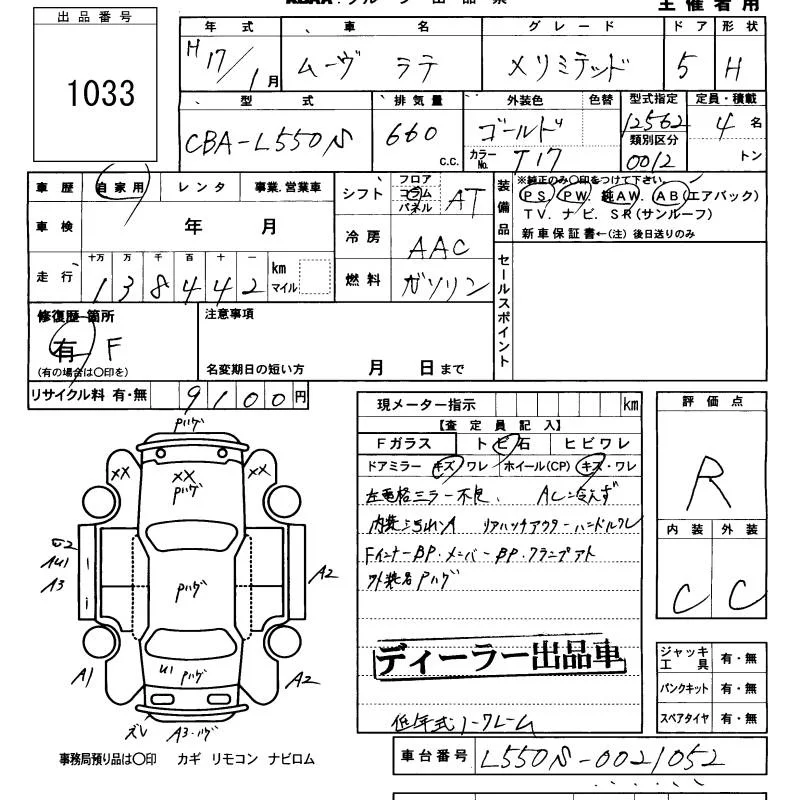 主催者用
出品番号
1033
年式 車名 グレード ドア 形状
H17/1月 ムーヴ ラテ Xリミテッド 5 H
型式 排気量 外装色 色替 型式指定 定員・積載
CBA-L550S 660 c.c. ゴールド 12562 4名
カラーNo. T17 類別区分 0012 トン
車歴 自家用 レンタ 事業.営業車
シフト フロア コラム パネル AT
装備品 ※純正のみ○印をつけて下さい。
PS PW. 純AW. AB(エアバック)
TV. ナビ. SR(サンルーフ)
新車保証書←(注) 後日送りのみ
車検 年 月
冷房 AAC
走行 十万 万 千 百 十 一
138442 km マイル
燃料 ガソリン
セールスポイント
修復歴 箇所
有 F
(有の場合は○印を)
注意事項
名変期日の短い方 月 日まで
リサイクル料 有・無 9100円
現メーター指示 km
【査定員記入】
Fガラス トビ石 ヒビワレ
ドアミラー キズ ワレ ホイール(CP) キズ・ワレ
左電格ミラー不良
リアハッチアウターハンドルワレ
FインナーBP・メンバーBP
ディーラー出品車
評価点
R
内装 外装
C C
ジャッキ工具 有・無
パンクキット 有・無
スペアタイヤ 有・無
Pハゲ
XX XX XX
Pハゲ
G2
AU1
A3
Pハゲ
A2
A1
U1 Pハゲ
A2
ズレ A3・ハゲ
事務局預り品は○印 カギ リモコン ナビロム
車台番号 L550S-0021052